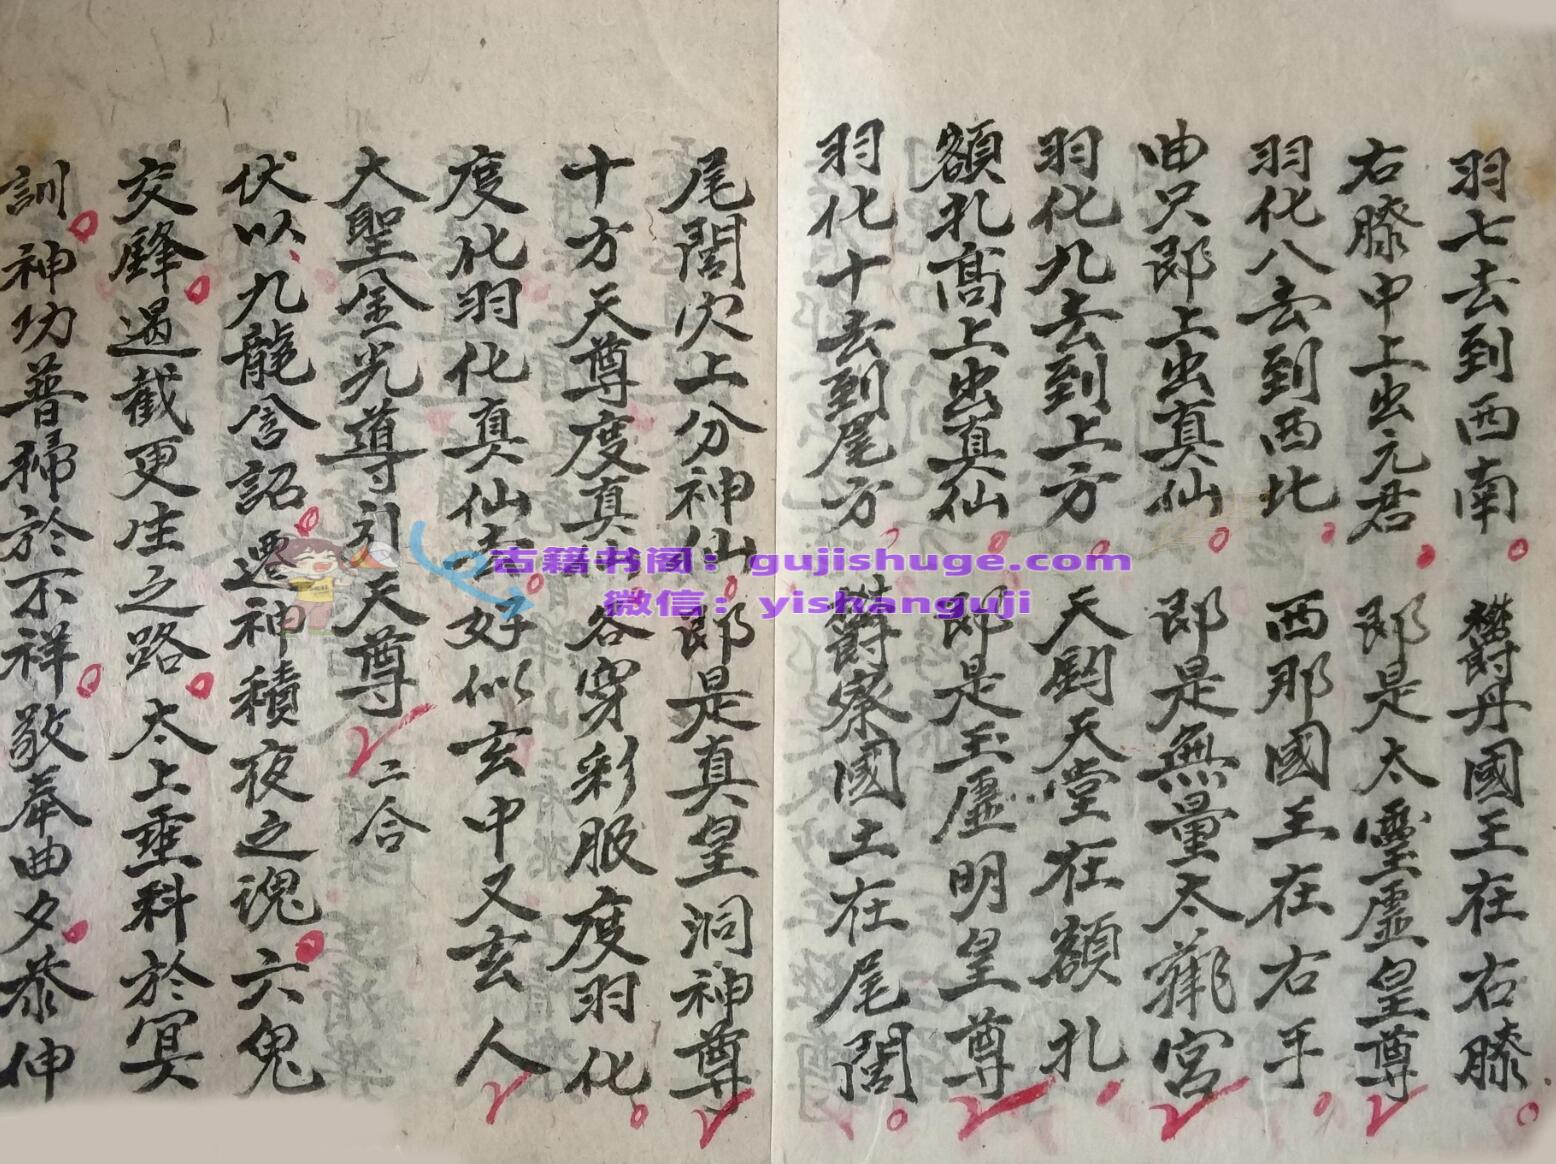 羽七去到西南 鬱丹國王在右膝
右膝中上出元君 即是太靈虛皇尊
羽化八去到西北 西那國王在右手
曲只即上出真仙 即是無量太華宮
羽化九去到上方 天劇天堂在額扎
額扎高上出真仙 即是玉虛明皇尊
羽化十去到尾方 鬱察國土在尾閭
尾閭穴上分神仙 即是真皇洞神尊
十方天尊度真 各穿彩服度羽化
度化羽化真仙去 好似玄中又玄人
大聖金光導引天尊 二合
伏以九龍含詔 神積夜之魂六鬼
交鋒遏截更生之路太上垂科於冥
訓神功普掃於不祥敬奉曲夕恭伸
古籍书阁：gujishuge.com
微信：yishanguji